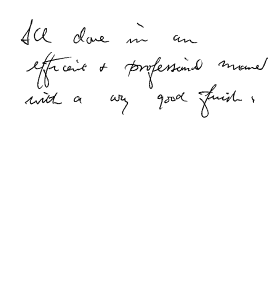 All done in an
efficient & professional manner
with a very good finish.